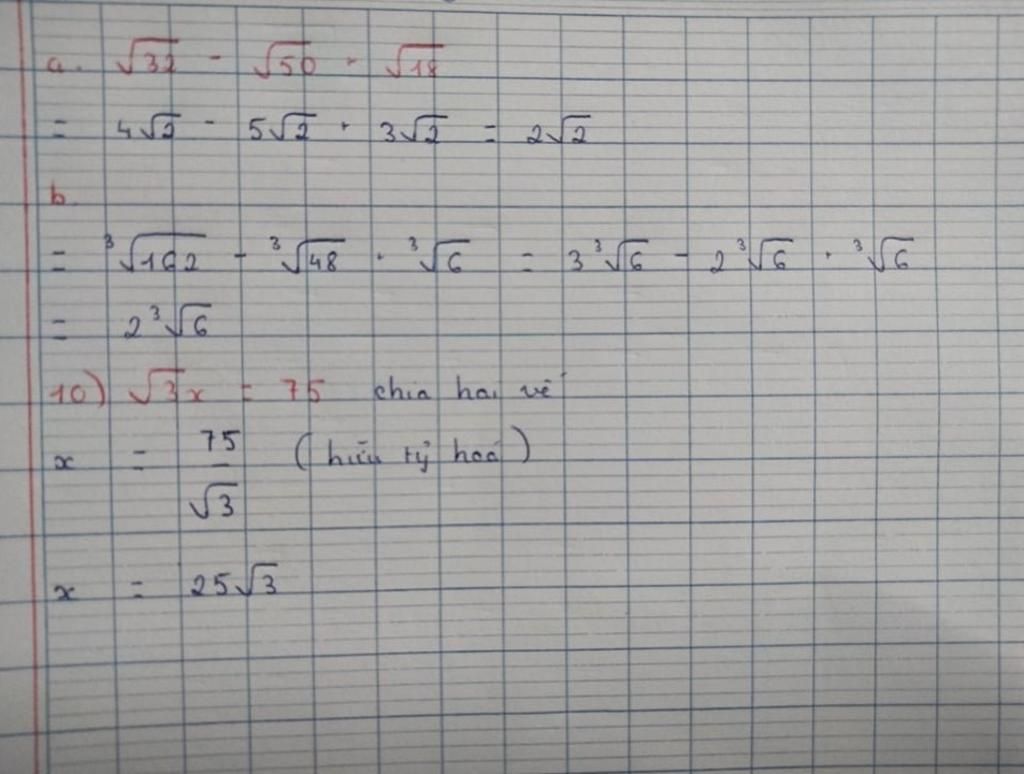 a. √32 - √50 + √18
= 4√2 - 5√2 + 3√2 = 2√2
b.
= ³√162 - ³√48 + ³√6 = 3³√6 - 2³√6 + ³√6
= 2³√6
10) √3x = 75 chia hai vế
x = 75/√3 (hữu tỷ hoá)
x = 25√3